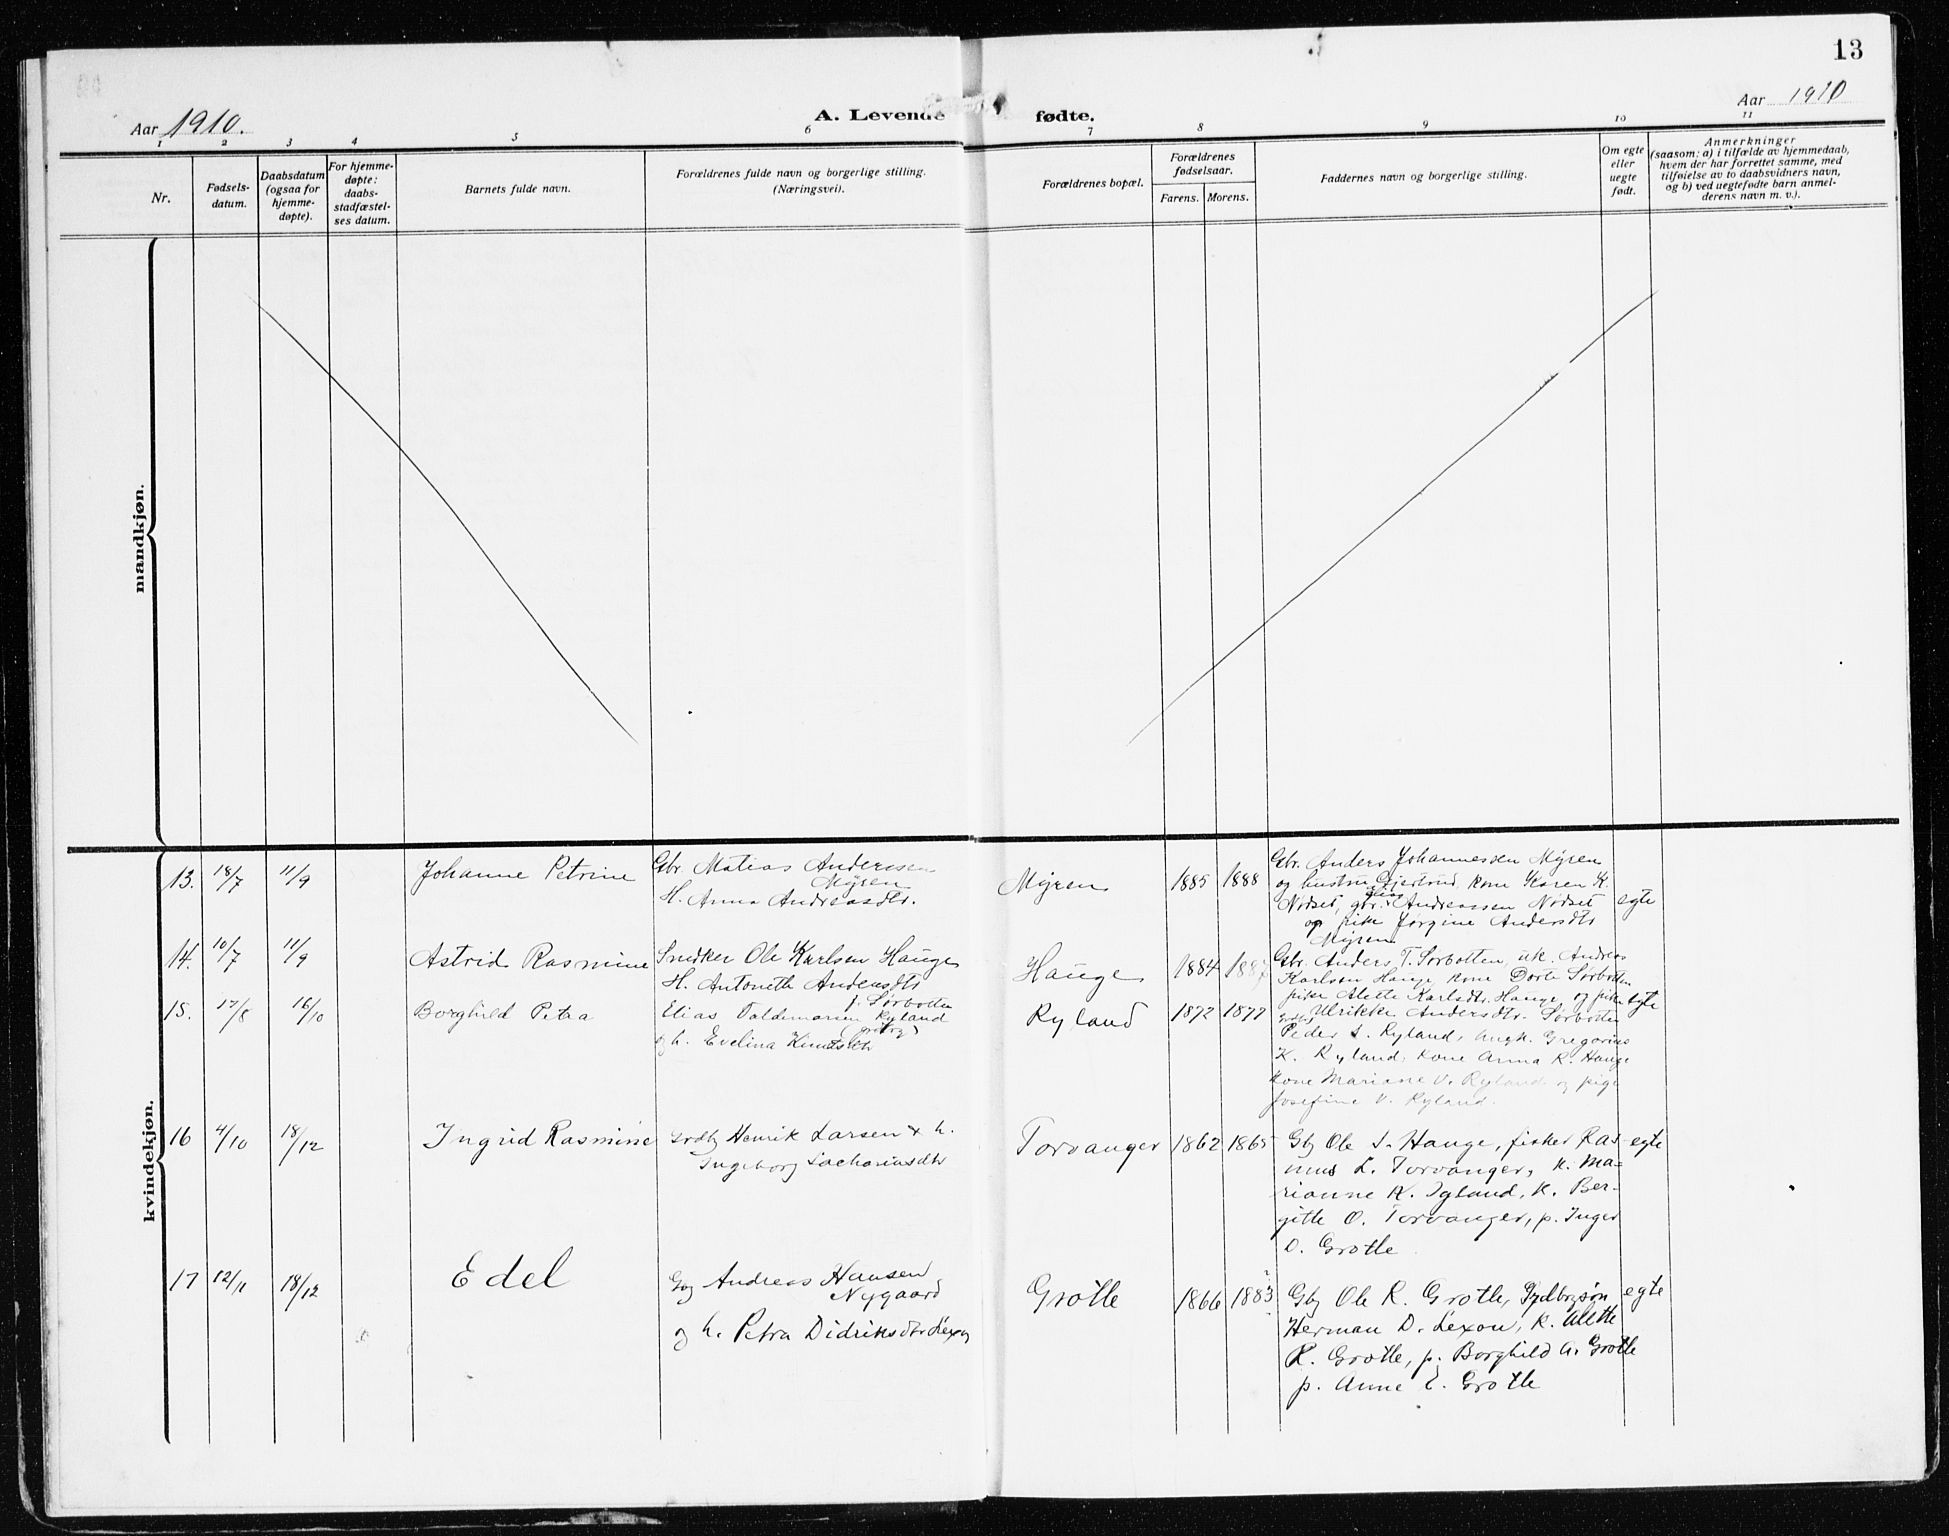 13
Aar 1910.
A. Levende fødte.
Aar 1910
1 2 3 4 5 6 7 8 9 10 11
Nr.
Fødsels-
datum.
Daabsdatum
(ogsaa for
hjemme-
døpte).
For hjemme-
døpte:
daabs-
stadfæstel-
ses datum.
Barnets fulde navn.
Forældrenes fulde navn og borgerlige stilling.
(Næringsvei).
Forældrenes bopæl.
Forældrenes
fødselsaar.
Farens. Morens.
Faddernes navn og borgerlige stilling.
Om egte
eller
uegte
født.
Anmerkninger
(saasom: a) i tilfælde av hjemmedaab,
hvem der har forrettet samme, med
tilføielse av to daabsvidners navn,
og b) ved uegtefødte barn anmel-
derens navn m. v.).
mandkjøn.
kvindekjøn.
13. 18/7 11/9 Johanne Petrine
Gbr. Matias Anderssen
Myren
H. Anna Andreasdtr.
Myren 1885 1888
Gbr. Anders Johannessen Myren
og hustru Gjertrud, kone Karen K.
Nødset, gbr. Elias Andreassen Nødset
og pike Jørgine Andersdtr
Myren
egte
14. 10/7 11/9 Astrid Rasmine
Snedker Ole Karlsen Hauge
H. Antonette Andersdtr
f. Sørbotten
Hauge 1884 1887
Gbr. Anders T. Sørbotten, uk. Andreas
Karlsen Hauge, kone Dorte Sørbotten
pike Alette Karlsdtr. Hauge og pike
Ulrikke Andersdtr. Sørbotten
egte
15. 17/8 16/10 Borghild Petra
Elias Valdemarsen Ryland
og h. Evelina
Ryland 1872 1877
Peder S. Ryland, ungk. Gregorius
K. Ryland, kone Anna R. Hauge
kone Mariane V. Ryland og pige
Josefine V. Ryland.
16 4/10 18/12 Ingrid Rasmine
Henrik Larsen + h.
Ingeborg Zachariasdtr
Torvanger 1862 1865
Gbg Ole S. Hauge, fisker Ras-
mus L. Torvanger, k. Ma-
rianne K. Igland, k. Ber-
gitte O. Torvanger, p. Inger
O. Grotle
egte
17 12/11 18/12 Edel
Gbg Andreas Hansen
Nygaard
og h. Petra Didriksdtr Lexou
Grotle 1866 1883
Gbg Ole R. Grotle,
Herman D. Lexou, k. Alette
R. Grotle, p. Borghild A. Grotle
p. Anne E. Grotle
egte